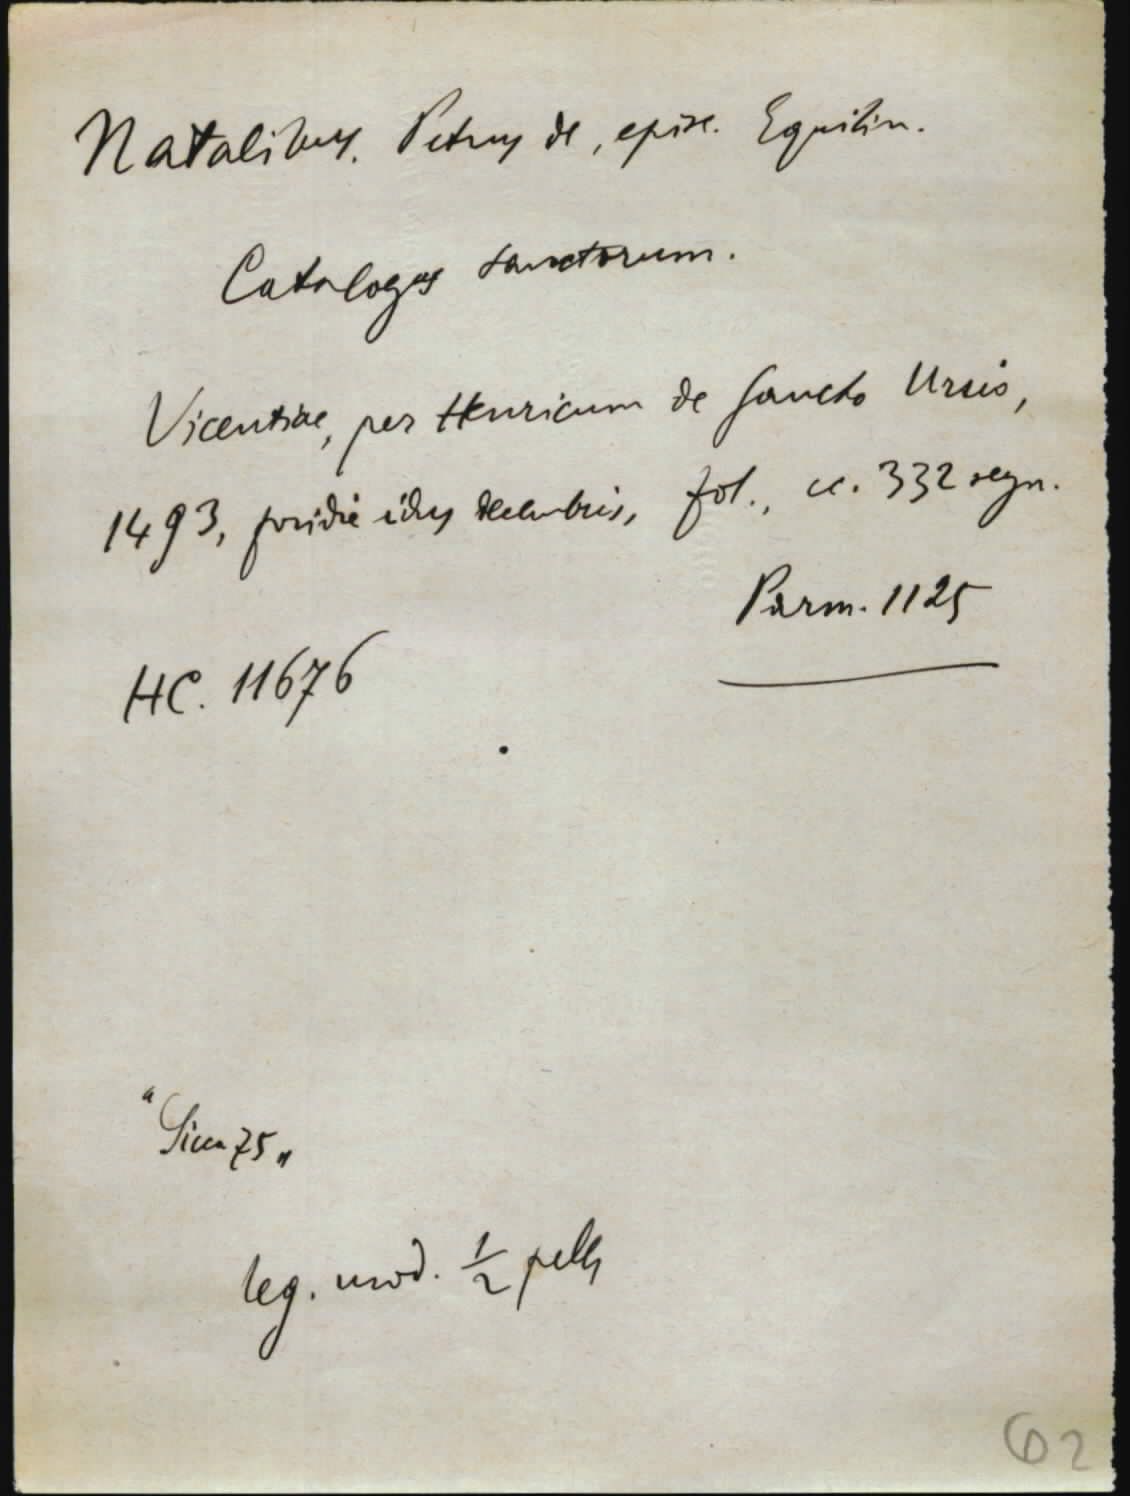 Natalibus. Petrus de, episc. Equilin.
Catalogus sanctorum.
Vicentiae, per Henricum de Sancto Ursio,
1493, pridie idus decembris, fol., cc. 332 segn.
Parm. 1125
HC. 11676
"Sicca 75"
leg. mod. 1/2 pelle
62